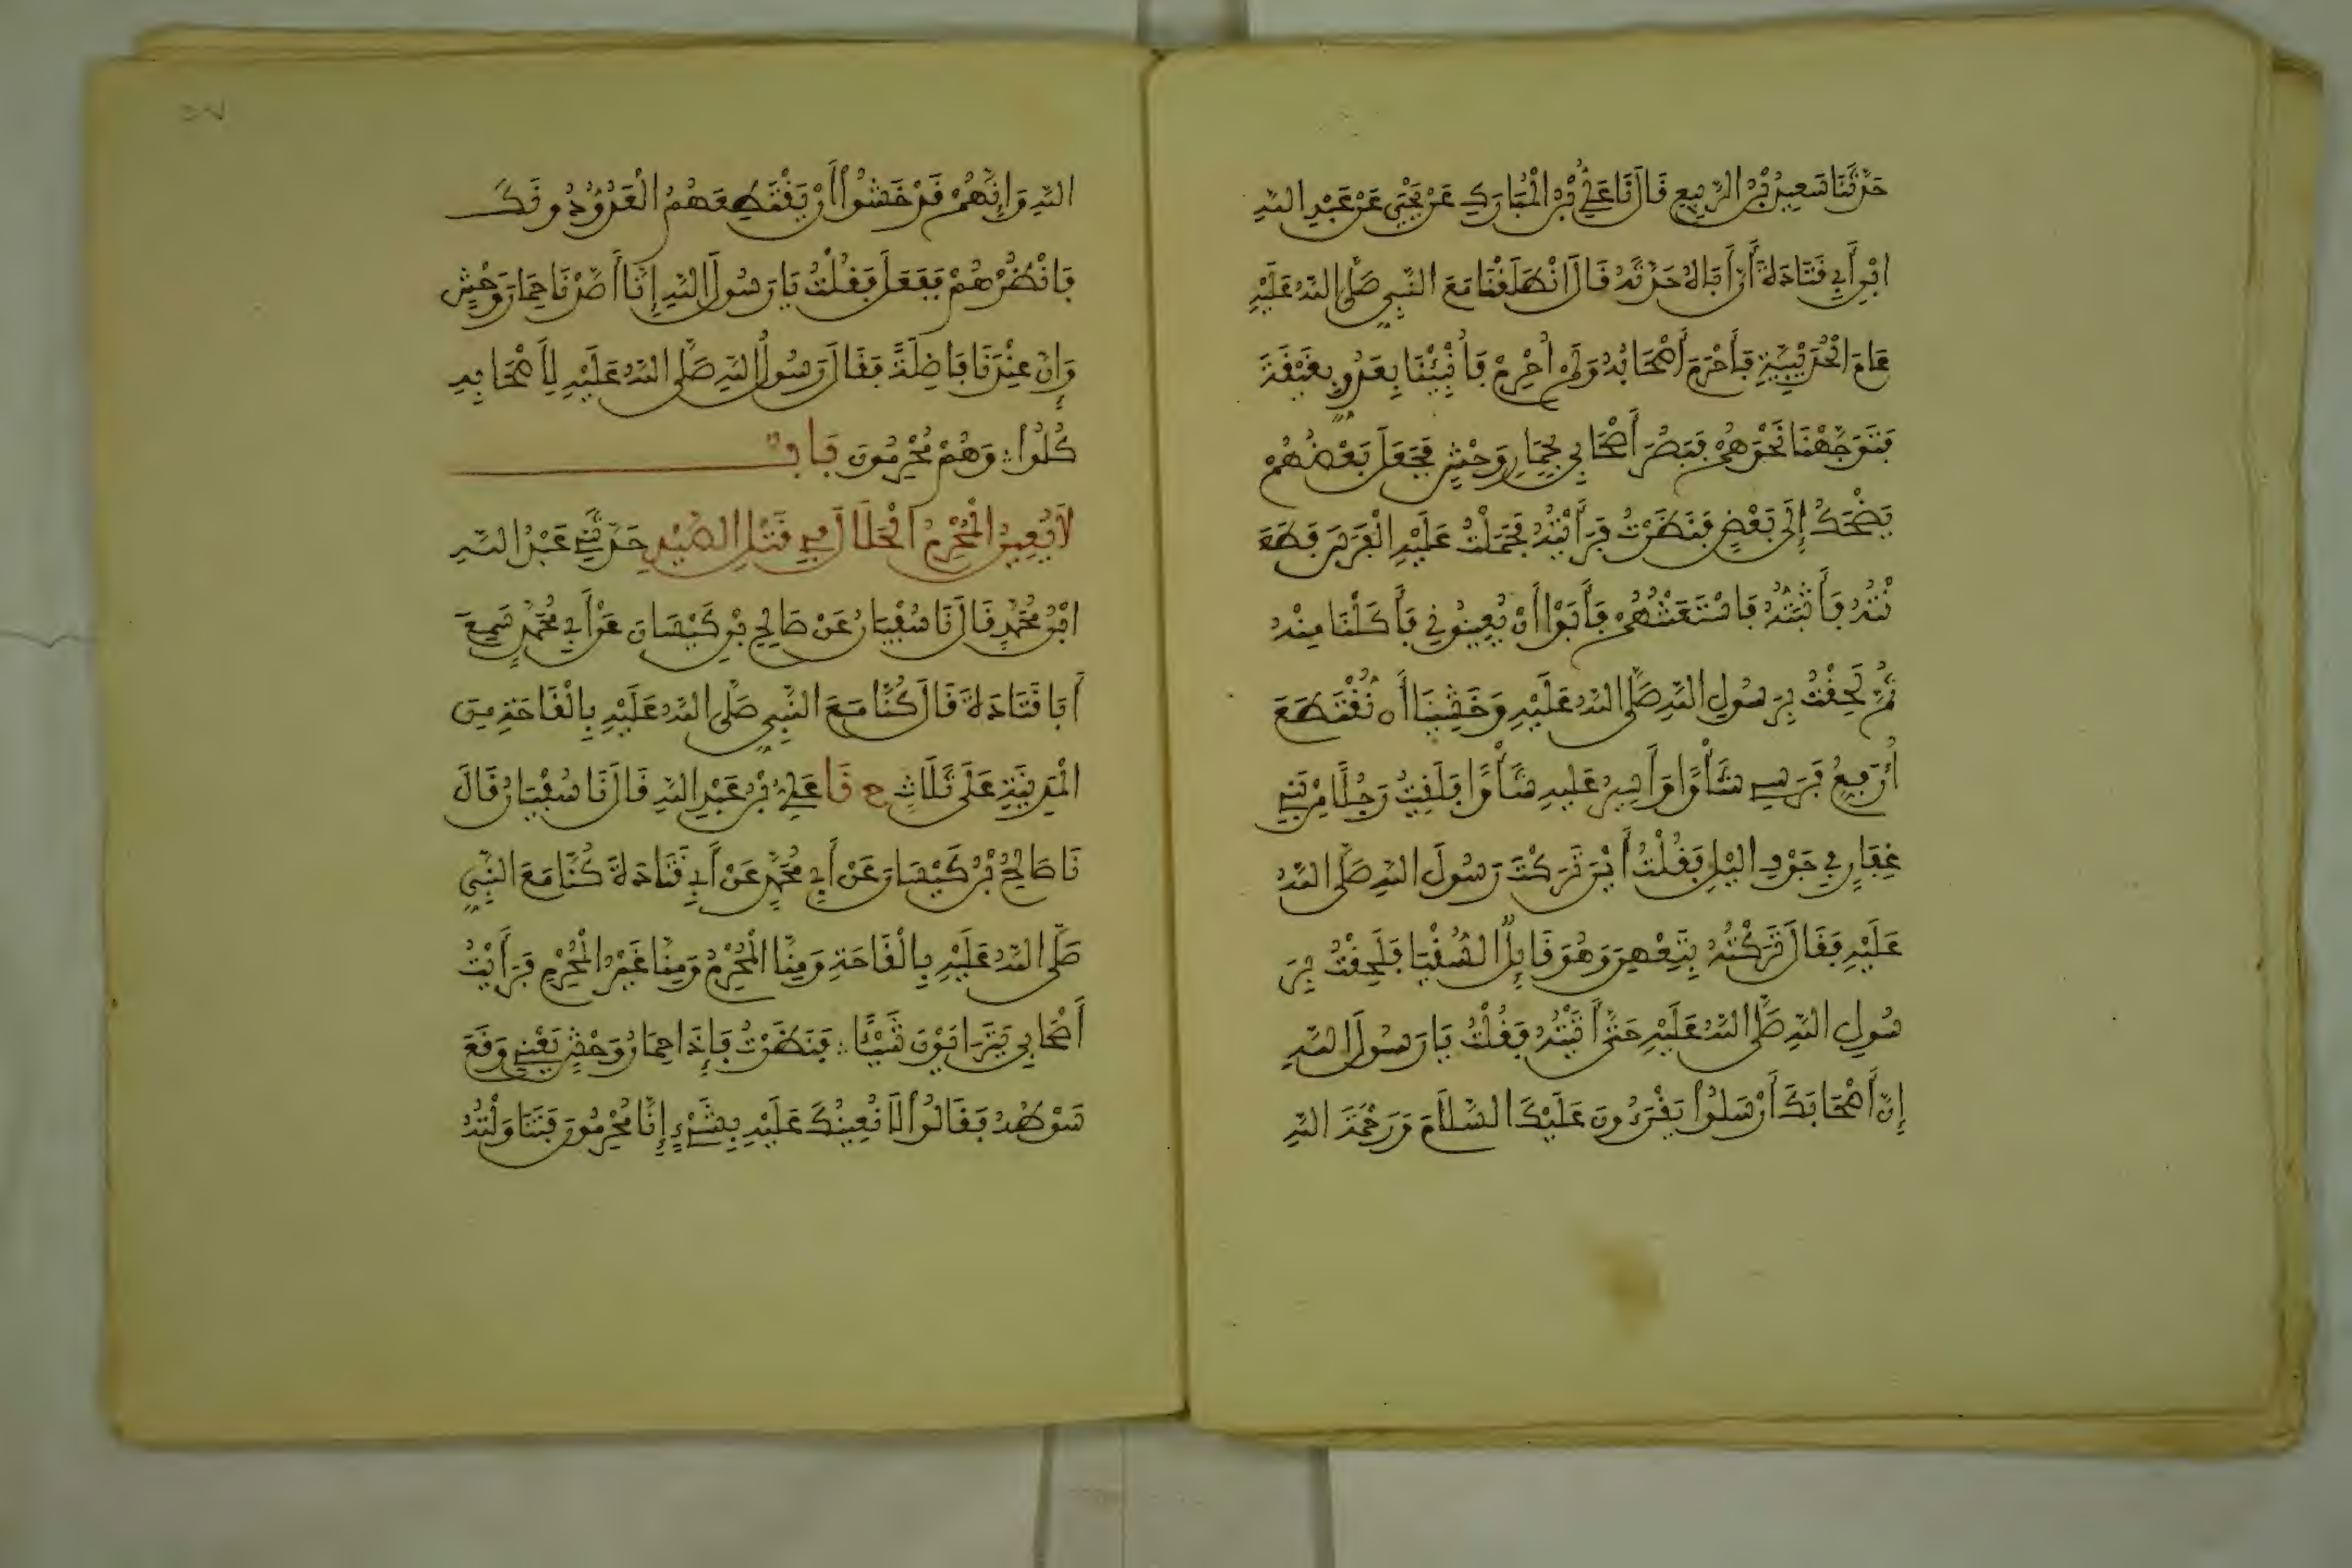 حَدَّثَنَا سَعِيدُ بْنُ الرَّبِيعِ قَالَ نَا عَلِيُّ بْنُ الْمُبَارَكِ عَنْ يَحْيَى عَنْ عَبْدِ اللَّهِ
ابْنِ أَبِي قَتَادَةَ أَنَّ أَبَاهُ حَدَّثَهُ قَالَ انْطَلَقْنَا مَعَ النَّبِيِّ صَلَّى اللَّهُ عَلَيْهِ
عَامَ الْحُدَيْبِيَةِ فَأَحْرَمَ أَصْحَابُهُ وَلَمْ أُحْرِمْ فَأُنْبِئْنَا بِعَدُوٍّ بِغَيْقَةَ
فَتَوَجَّهْنَا نَحْوَهُمْ فَبَصُرَ أَصْحَابِي بِحِمَارِ وَحْشٍ فَجَعَلَ بَعْضُهُمْ
يَضْحَكُ إِلَى بَعْضٍ فَنَظَرْتُ فَرَأَيْتُهُ فَحَمَلْتُ عَلَيْهِ الْفَرَسَ فَطَعَ
نْتُهُ فَأَثْبَتُّهُ فَاسْتَعَنْتُهُمْ فَأَبَوْا أَنْ يُعِينُونِي فَأَكَلْنَا مِنْهُ
ثُمَّ لَحِقْتُ بِرَسُولِ اللَّهِ صَلَّى اللَّهُ عَلَيْهِ وَخَشِينَا أَنْ نُقْتَطَعَ
أُرَفِّعُ فَرَسِي شَأْوًا وَأَسِيرُ عَلَيْهِ شَأْوًا فَلَقِيتُ رَجُلًا مِنْ بَنِي
غِفَارٍ فِي جَوْفِ اللَّيْلِ فَقُلْتُ أَيْنَ تَرَكْتَ رَسُولَ اللَّهِ صَلَّى اللَّهُ
عَلَيْهِ فَقَالَ تَرَكْتُهُ بِتَعْهِنَ وَهُوَ قَائِلٌ السُّقْيَا فَلَحِقْتُ بِرَ
سُولِ اللَّهِ صَلَّى اللَّهُ عَلَيْهِ حَتَّى أَتَيْتُهُ فَقُلْتُ يَا رَسُولَ اللَّهِ
إِنَّ أَصْحَابَكَ أَرْسَلُوا يَقْرَءُونَ عَلَيْكَ السَّلَامَ وَرَحْمَةَ اللَّهِ
اللَّهِ وَإِنَّهُمْ قَدْ خَشُوا أَنْ يَقْتَطِعَهُمُ الْعَدُوُّ دُونَكَ
فَانْظُرْهُمْ فَفَعَلَ فَقُلْتُ يَا رَسُولَ اللَّهِ إِنَّا أَصَّدْنَا حِمَارَ وَحْشٍ
وَإِنَّ عِنْدَنَا فَاضِلَةً فَقَالَ رَسُولُ اللَّهِ صَلَّى اللَّهُ عَلَيْهِ لِأَصْحَابِهِ
كُلُوا وَهُمْ مُحْرِمُونَ بَاب
لَا يُعِينُ الْمُحْرِمُ الْحَلَالَ فِي قَتْلِ الصَّيْدِ حَدَّثَنِي عَبْدُ اللَّهِ
ابْنُ مُحَمَّدٍ قَالَ نَا سُفْيَانُ عَنْ صَالِحِ بْنِ كَيْسَانَ عَنْ أَبِي مُحَمَّدٍ سَمِعَ
أَبَا قَتَادَةَ قَالَ كُنَّا مَعَ النَّبِيِّ صَلَّى اللَّهُ عَلَيْهِ بِالْقَاحَةِ مِنَ
الْمَدِينَةِ عَلَى ثَلَاثٍ ح نَا عَلِيُّ بْنُ عَبْدِ اللَّهِ قَالَ نَا سُفْيَانُ قَالَ
نَا صَالِحُ بْنُ كَيْسَانَ عَنْ أَبِي مُحَمَّدٍ عَنْ أَبِي قَتَادَةَ كُنَّا مَعَ النَّبِيِّ
صَلَّى اللَّهُ عَلَيْهِ بِالْقَاحَةِ وَمِنَّا الْمُحْرِمُ وَمِنَّا غَيْرُ الْمُحْرِمِ فَرَأَيْتُ
أَصْحَابِي يَتَرَاءَوْنَ شَيْئًا فَنَظَرْتُ فَإِذَا حِمَارُ وَحْشٍ يَعْنِي وَقَعَ
سَوْطُهُ فَقَالُوا لَا نُعِينُكَ عَلَيْهِ بِشَيْءٍ إِنَّا مُحْرِمُونَ فَتَنَاوَلْتُهُ